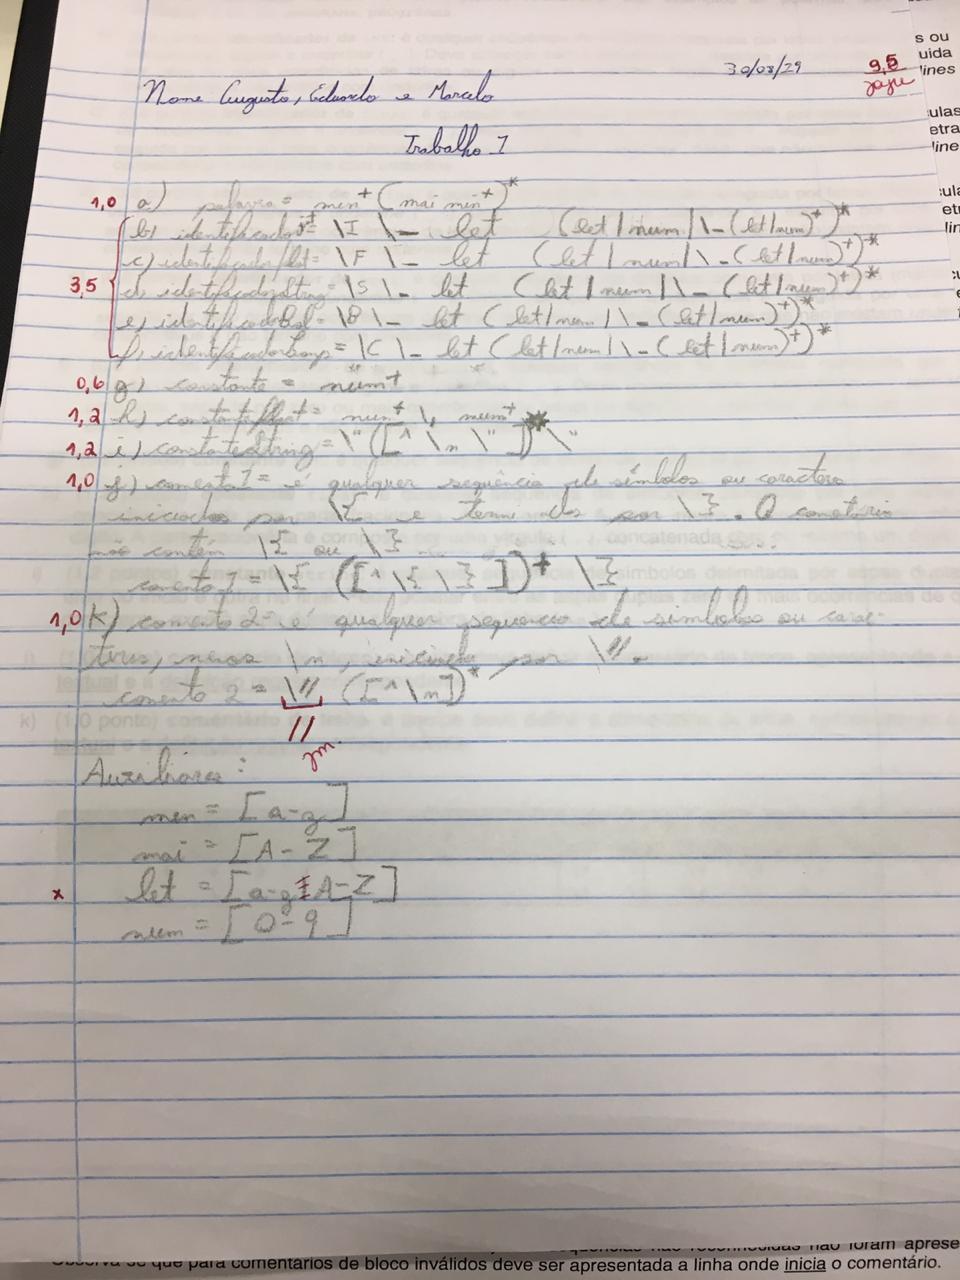 s ou
uida
lines
30/03/29
9,5
Nome Augusto, Eduardo e Marcelo
ulas
etra
line
Trabalho I
1,0 a) palavra = men+ (mai men+)*
b) identificadorint = \I \_ let (let | num | \_ (let/num)+)*
c) identificadorfloat = \F \_ let (let | num | \_ (let/num)+)*
3,5 d) identificadorString = \S \_ let (let | num | \_ (let/num)+)*
e) identificadorBool = \B \_ let (let/num | \_ (let/num)+)*
f) identificadorComp = \C \_ let (let/num | \_ (let/num)+)*
0,6 g) constante = num+
1,2 h) constantefloat = num+ \, num+
1,2 i) constanteString = \" ([^ \n \"])* \"
1,0 j) comento 1 = é qualquer sequência de símbolos ou caracteres
iniciados por \{ e terminados por \}. O cometário
não contém \{ ou \}
comento 1 = \{ ([^ \{ \} ])+ \}
1,0 k) comento 2 = é qualquer sequencia de simbolos ou carac-
teres, menos \n, iniciada por \//.
comento 2 = \// ([^ \n])*
//
jm.
Auxiliares:
men = [a-z]
mai = [A-Z]
x let = [a-z A-Z]
num = [0-9]
não foram aprese
Observa-se que para comentários de bloco inválidos deve ser apresentada a linha onde inicia o comentário.